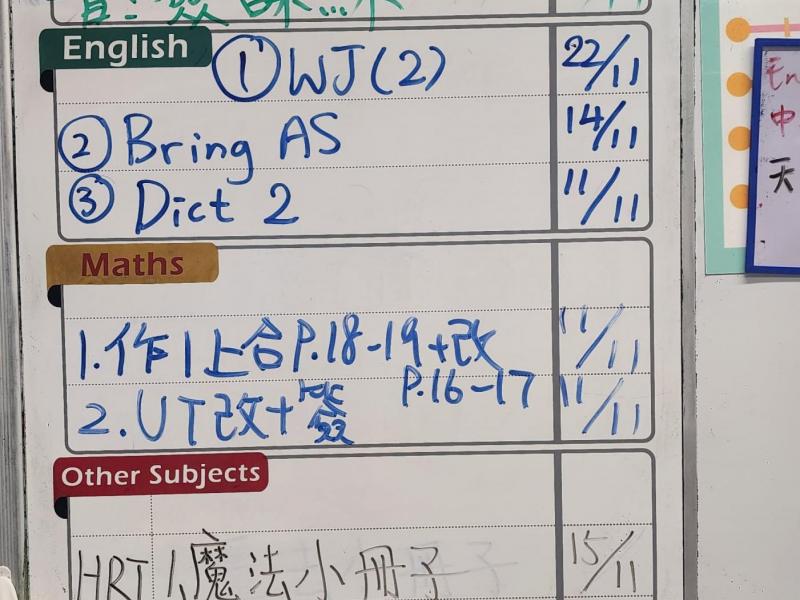 English
① WJ(2) 22/11
② Bring AS 14/11
③ Dict 2 11/11
Maths
1.作1上合P.18-19+改 11/11
P.16-17
2.UT改+簽 11/11
Other Subjects
HRT 1.魔法小冊子 15/11
中
天